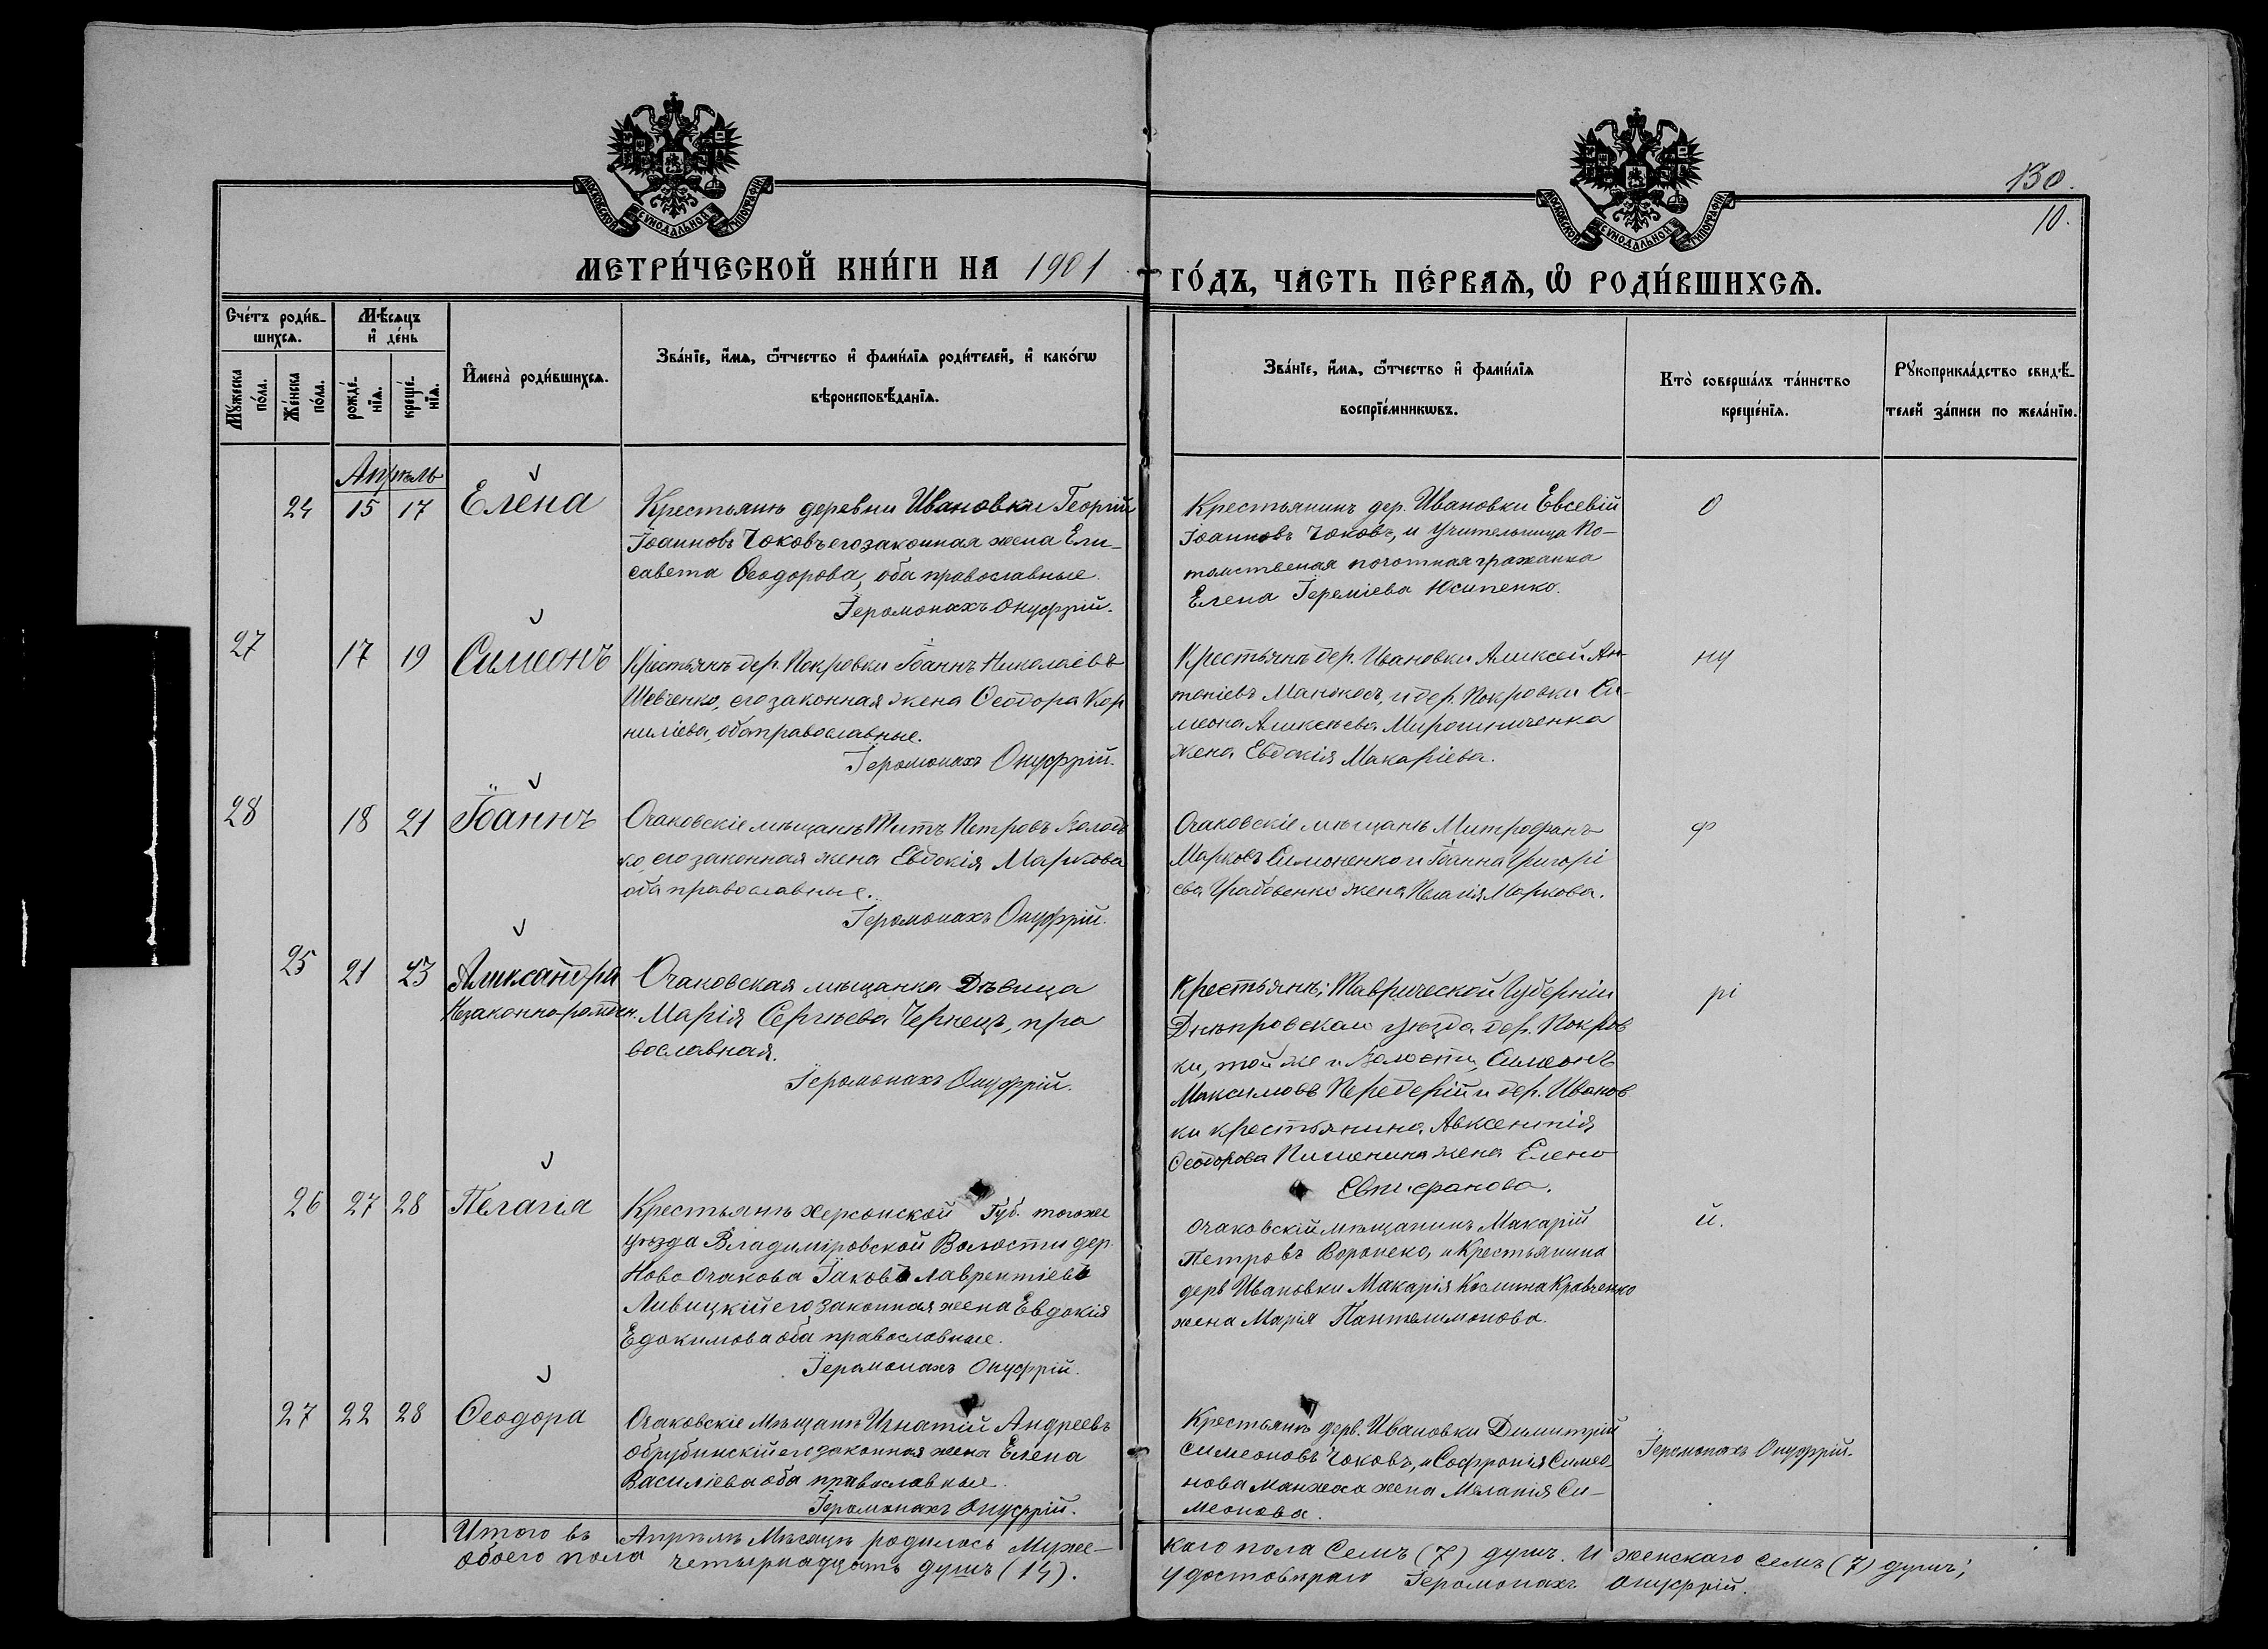 МОСКОВСКОЙ СУНОДАЛЬНОЙ ТИПОГРАФІИ
МОСКОВСКОЙ СУНОДАЛЬНОЙ ТИПОГРАФІИ
130.
10.
МЕТРИ́ЧЕСКОЙ КНИ́ГИ НА 1901
ГО́ДЪ, ЧА́СТЬ ПЕ́РВАѦ, Ѡ҆ РОДИ́ВШИХСѦ.
Сче́тъ роди́в-
шихсѧ.
Мѣ́сѧцъ
и҆ де́нь
Мꙋ́жеска по́ла.
Же́нска по́ла.
рожде́-нїѧ.
креще́-нїѧ.
И҆мена̀ роди́вшихсѧ.
Зва́нїе, и҆́мѧ, ѻ҆́тчество и҆ фами́лїѧ роди́телей, и҆ како́гѡ
вѣроисповѣ́данїѧ.
Зва́нїе, и҆́мѧ, ѻ҆́тчество и҆ фами́лїѧ
воспрїе́мникѡвъ.
Кто̀ соверша́лъ та́инство
креще́нїѧ.
Рꙋкоприкла́дство свидѣ́-
телей за́писи по жела́нїю.
Апрѣль
24 15 17 Елена
Крестьянѣ деревни Ивановки Георгій
Іоанновъ Чоковъ его законная жена Ели-
савета Ѳеодорова, оба православные.
Іеромонахъ Онуфрій.
Крестьянинъ дер. Ивановки Евсевій
Іоанновъ Чоковъ, и Учительница По-
томственая почотная гражанка
Елена Іереміева Юсипенко.
О
27 17 19 Симеонъ
Крестьянѣ дер. Покровки Іоаннъ Николаевъ
Шевченко, его законная жена Ѳеодора Кор
ниліева, оба православные.
Іеромонахъ Онуфрій.
Крестьянѣ дер. Ивановки Алексей Ан-
тоніевъ Манжосъ, и дер. Покровки Си-
меона Алексѣева Мирошниченка
жена Евдокія Макаріева.
ну
28 18 21 Іоаннъ
Очаковскіе мѣщанѣ Титъ Петровъ Колодь
ко, его законная жена Евдокія Маркова
оба православные.
Іеромонахъ Онуфрій.
Очаковскіе мѣщанѣ Митрофанъ
Марковъ Симоненко и Іоанна Григорі
ева Грабовенко жена Пелагія Маркова.
ф
25 21 23 Александра
Незаконно-рожден.
Очаковская мѣщанка Дѣвица
Марія Сергѣева Чернецъ, пра
вославная.
Іеромонахъ Онуфрій.
Крестьянѣ; Таврической Губерніи
Днѣпровскаго уѣзда дер. Покров
ки, той же и Волости, Симеонъ
Максимовъ Передерій и дер. Иванов
ки крестьянина Авксентія
Ѳеодорова жена Елена
Евпифанова.
рі
26 27 28 Пелагіа
Крестьянѣ Херсонской Губ. тогоже
уѣзда Владиміровской Волости дер.
Ново Очакова Іаковъ Лаврентіевъ
Ливицкій его законная жена Евдокія
Едокимова оба православные.
Іеромонахъ Онуфрій.
Очаковскій мѣщанинъ Макарій
Петровъ и Крестьянина
дерв Ивановки Макарія Косьмина Кравченко
жена Марія Пантелимонова.
й.
27 22 28 Ѳеодора
Очаковскіе Мѣщанѣ Игнатій Андреевъ
Обрубинскій его законная жена Елена
Василіева оба православныя.
Іеромонахъ Онуфрій.
Крестьянѣ дерв. Ивановки Димитрій
Симеоновъ Чоковъ, и Софронія Симео
нова Манжоса жена Меланія Си-
меонова.
Іеромонахъ Онуфрій.
Итого въ Апрѣлѣ Мѣсяцѣ родилось Муже-
скаго пола Семъ (7) душъ. И женскаго семъ (7) душъ;
обоего пола четырнадцать душъ (14).
Удостовѣряю Іеромонахъ Онуфрій.